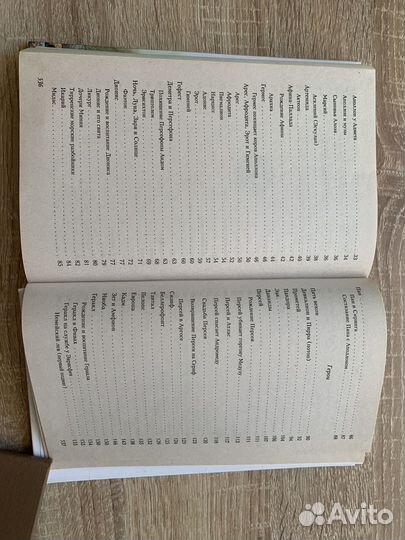 Аполлон у Адмета 33
Аполлон и музы 34
Сыновья Алоэя 36
Марсий 36
Асклепий (Эскулап) 38
Артемида 39
Актеон 40
Афина-Паллада 42
Рождение Афины 42
Арахна 44
Гермес 46
Гермес похищает коров Аполлона 46
Арес, Афродита, Эрот и Гименей 50
Арес 50
Афродита 51
Пигмалион 54
Нарцисс 54
Адонис 57
Эрот 59
Гименей 60
Гефест 60
Деметра и Персефона 63
Похищение Персефоны Аидом 63
Триптолем 68
Эрисихтон 69
Ночь, Луна, Заря и Солнце 71
Фаэтон 73
Дионис 77
Рождение и воспитание Диониса 77
Дионис и его свита 79
Ликург 80
Дочери Миния 81
Тирренские морские разбойники 82
Икарий 84
Мидас 85
336
Пан
Пан и Сиринга 86
Состязание Пана с Аполлоном 87
Герои
Пять веков 88
Девкалион и Пирра (потоп) 90
Прометей 92
Пандора 94
Эак 104
Данаиды 107
Персей 111
Рождение Персея 111
Персей убивает горгону Медузу 113
Персей и Атлас 117
Персей спасает Андромеду 118
Свадьба Персея 120
Возвращение Персея на Сериф 123
Персей в Аргосе 124
Сизиф 125
Беллерофонт
Тантал
Пелопс
Европа
Кадм
Зет и Амфион
Ниоба
Геракл
Рождение и воспитание Геракла
Геракл в Фивах
Геракл на службе у Эврисфея
Немейский лев (первый подвиг) 157
Avito